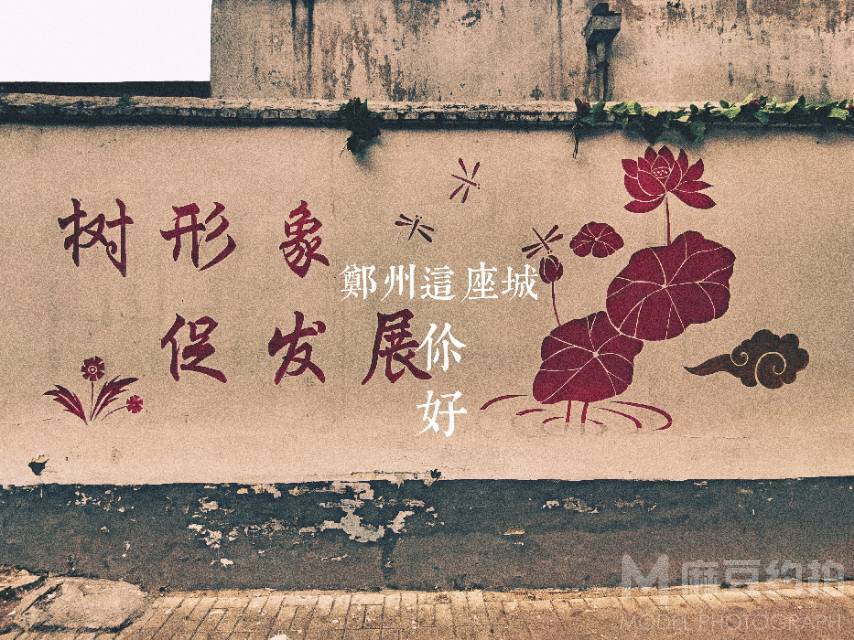 树形象
促发展
鄭州這座城
伱好
麻豆约拍
MODEL PHOTOGRAPH